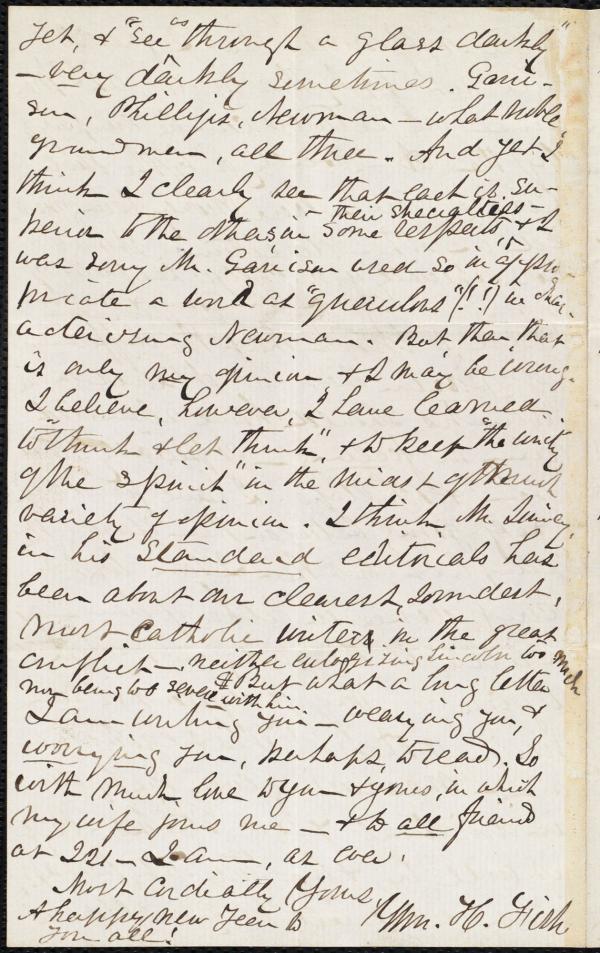 yet, & "see as through a glass darkly"
— very darkly sometimes. Garri-
son, Phillips, Newman — what noble,
grand men, all three. And yet I
think I clearly see that each is su-
perior to the others in — their specialties —
some respects, & I
was sorry Mr. Garrison used so inappro-
priate a word as "querulous" (!!) in char-
acterising Newman. But then that
is only my opinion, & I may be wrong.
I believe, however, I have learned
to "think & let think", & to keep "the unity
of the spirit" in the midst of the much
variety of opinion. I think Mr. Quincy,
in his Standard editorials has
been about our clearest, soundest,
most catholic writer in the great
conflict — neither eulogizing Lincoln too much
nor being too severe with him. But what a long letter
I am writing you — wearying you, &
worrying you, perhaps, to read. So
with much love to you & yours, in which
my wife joins me — & to all friends
at 221 — I am, as ever,
Most Cordially Yours
Wm. H. Fish
A happy New Year to
you all!